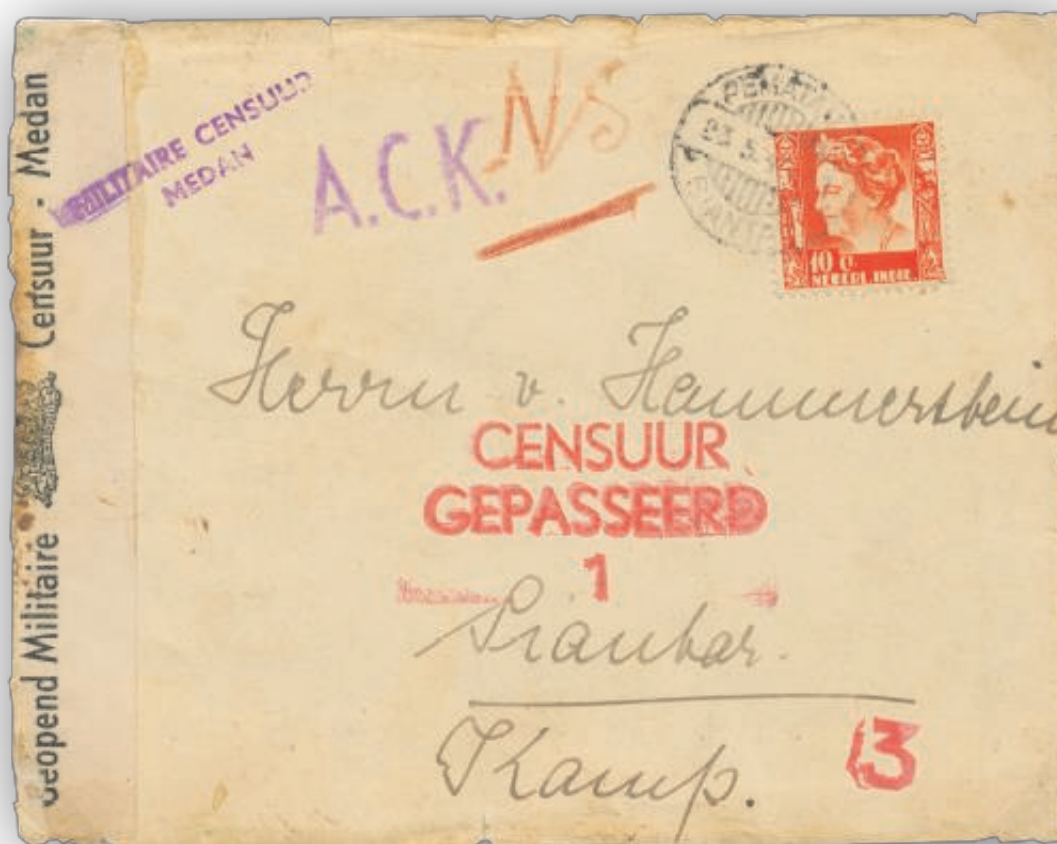 Geopend Militaire Censuur - Medan
MILITAIRE CENSUUR
MEDAN
A.C.K.
NS
PEMAT
23 5
1
10 C
NEDERL. INDIE
Herrn v. Hammerstein
CENSUUR
GEPASSEERD
1
Siantar.
Kamp.
3